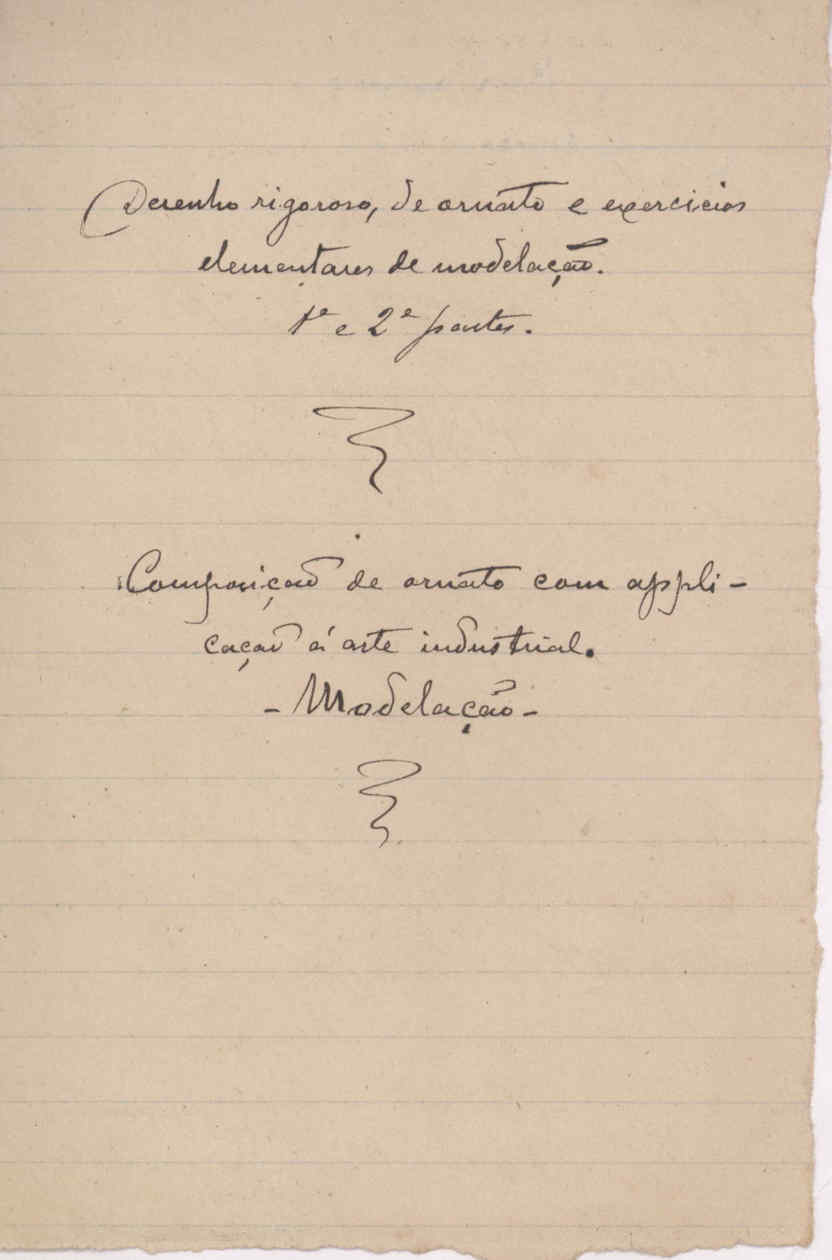 Desenho rigoroso, de ornato e exercicios
elementares de modelação.
1ª e 2ª partes.
Composição de ornato com appli-
cação á arte industrial.
- Modelação -